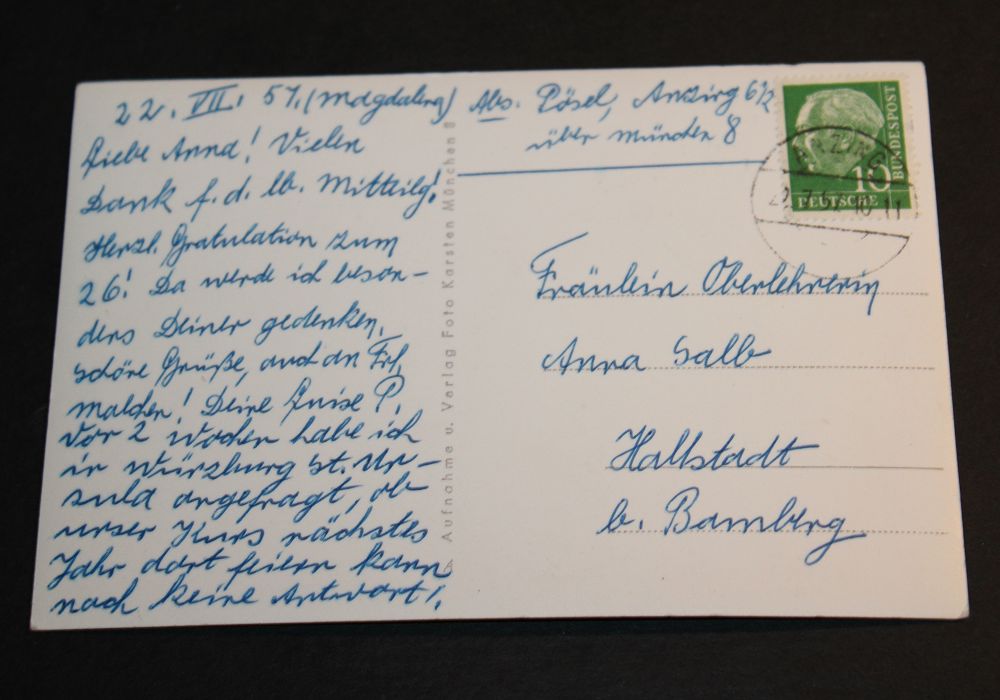 22. VII. 57. (Magdalena)
Liebe Anna! Vielen
Dank f. d. lb. Mitteilg!
Herzl. Gratulation zum
26! Da werde ich beson-
ders Deiner gedenken.
schöne Grüße, auch an Frl.
Malchen! Deine Luise P.
Vor 2 Wochen habe ich
in Würzburg St. Ur-
sula angefragt, ob
unser Kurs nächstes
Jahr dort feiern kann
noch keine Antwort!
Aufnahme u. Verlag Foto Karsten München 8
Abs. Pösel, Anzing 6 1/2
über München 8
BUNDESPOST
10
DEUTSCHE
ANZING
Fräulein Oberlehrerin
Anna Salb
Hallstadt
b. Bamberg